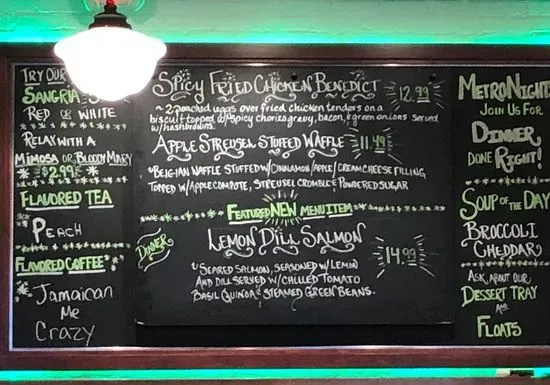 TRY OUR
SANGRIA
RED OR WHITE
RELAX WITH A
MIMOSA OR BLOODY MARY
$2.99
FLAVORED TEA
PEACH
FLAVORED COFFEE
Jamaican
Me
Crazy
SPICY FRIED CHICKEN BENEDICT 12.99
~ 2 poached eggs over fried chicken tenders on a
biscuit topped w/spicy chorizo gravy, bacon, & green onions served
w/hashbrowns.
APPLE STREUSEL STUFFED WAFFLE 11.49
~BELGIAN WAFFLE STUFFED W/CINNAMON/APPLE/CREAM CHEESE FILLING,
TOPPED W/APPLE COMPOTE, STREUSEL CRUMBLE & POWDERED SUGAR
FEATURED NEW MENU ITEM
DINNER
LEMON DILL SALMON 14.99
~SEARED SALMON, SEASONED W/LEMON
AND DILL SERVED W/CHILLED TOMATO
BASIL QUINOA & STEAMED GREEN BEANS.
METRO NIGHTS
JOIN US FOR
DINNER
DONE RIGHT!
SOUP OF THE DAY
BROCCOLI
CHEDDAR
ASK ABOUT OUR
DESSERT TRAY
AND
FLOATS